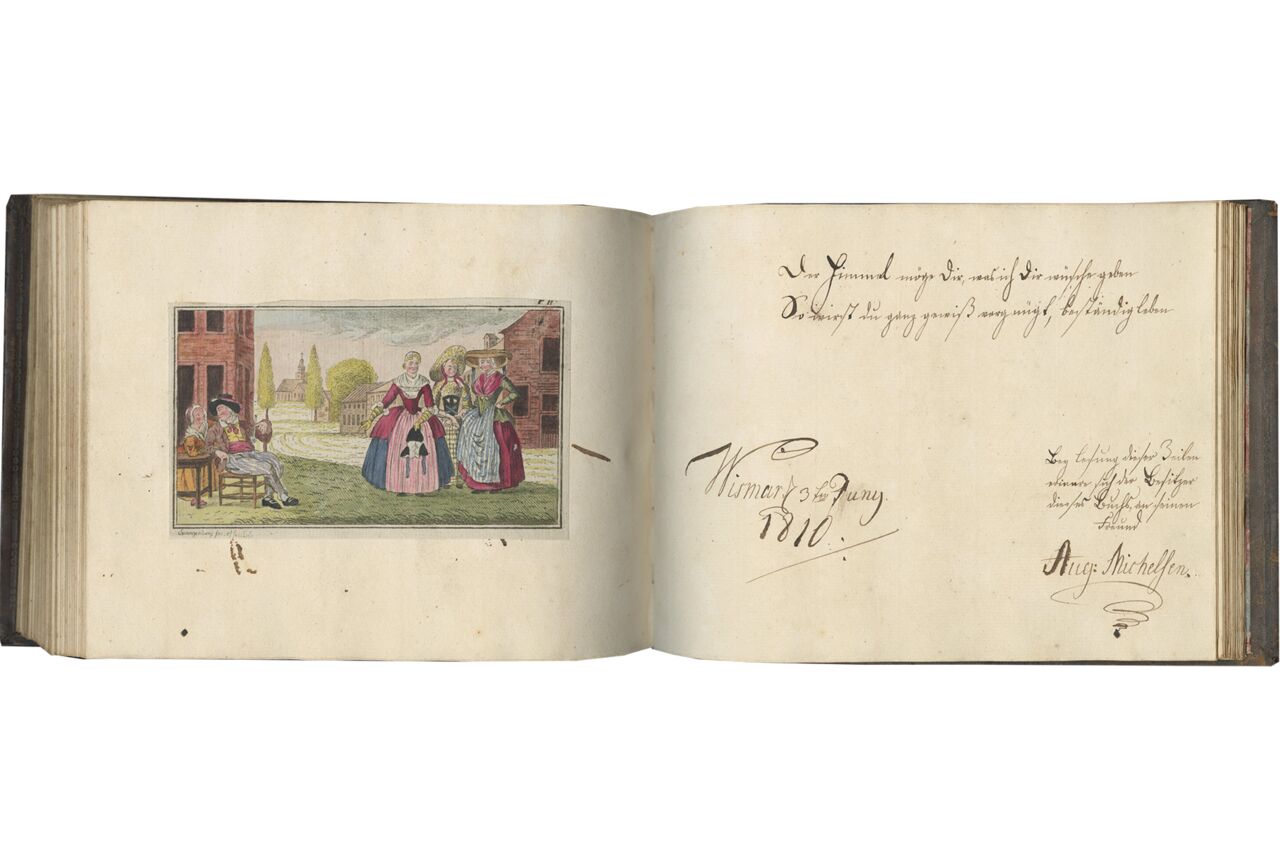 Der Himmel möge Dir, was ich Dir wüsche geben
So wirst du ganz gewiß vergnügt, beständig leben
Wismar d 3ten Juny.
1810.
Bey lesung dieser Zeilen
erinnre sich der Besitzer
dieses Buchs, an seinen
Freund
Aug: Michelsen.